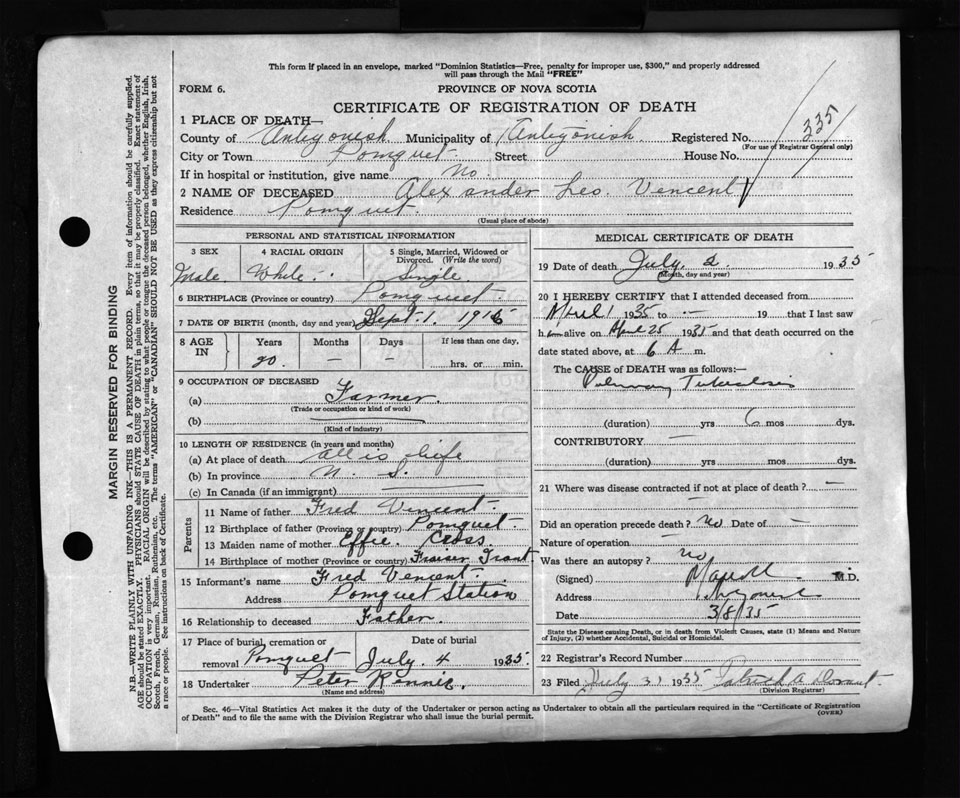 This form if placed in an envelope, marked "Dominion Statistics—Free, penalty for improper use, $300," and properly addressed
will pass through the Mail "FREE"
FORM 6.
PROVINCE OF NOVA SCOTIA
CERTIFICATE OF REGISTRATION OF DEATH
1 PLACE OF DEATH—
County of Antigonish Municipality of Antigonish Registered No. 335
(For use of Registrar General only)
City or Town Pomquet Street House No.
If in hospital or institution, give name No.
2 NAME OF DECEASED Alexander Leo. Vencent
Residence Pomquet.
(Usual place of abode)
PERSONAL AND STATISTICAL INFORMATION
3 SEX 4 RACIAL ORIGIN 5 Single, Married, Widowed or
Divorced. (Write the word)
Male White Single
6 BIRTHPLACE (Province or country) Pomquet.
7 DATE OF BIRTH (month, day and year) Sept. 1. 1915
8 AGE IN Years Months Days If less than one day,
20 — — hrs. or min.
9 OCCUPATION OF DECEASED
(a) Farmer.
(Trade or occupation or kind of work)
(b)
(Kind of industry)
10 LENGTH OF RESIDENCE (in years and months)
(a) At place of death all is life
(b) In province N. S.
(c) In Canada (if an immigrant)
Parents
11 Name of father Fred Vincent.
12 Birthplace of father (Province or country) Pomquet
13 Maiden name of mother Effie. Cross.
14 Birthplace of mother (Province or country) Fraiser Grant
15 Informant's name Fred Vencent.
Address Pomquet Station
16 Relationship to deceased Father.
17 Place of burial, cremation or Date of burial
removal Pomquet July. 4 1935.
18 Undertaker Peter Rennie.
(Name and address)
MEDICAL CERTIFICATE OF DEATH
19 Date of death July. 2 1935
(Month, day and year)
20 I HEREBY CERTIFY that I attended deceased from
1 1935 to — 19 that I last saw
him alive on April 25 1935 and that death occurred on the
date stated above, at 6 A m.
The CAUSE of DEATH was as follows:—
Pulmonary Tuberculosis
(duration) yrs 6 mos dys.
CONTRIBUTORY —
(duration) yrs. mos. dys.
21 Where was disease contracted if not at place of death? —
Did an operation precede death? No Date of —
Nature of operation —
Was there an autopsy? no
(Signed) M.D.
Address Antigonish
Date 3/8/35
State the Disease causing Death, or in death from Violent Causes, state (1) Means and Nature
of Injury, (2) whether Accidental, Suicidal or Homicidal.
22 Registrar's Record Number
23 Filed July 31 1935 Patrick A
(Division Registrar)
Sec. 46—Vital Statistics Act makes it the duty of the Undertaker or person acting as Undertaker to obtain all the particulars required in the "Certificate of Registration
of Death" and to file the same with the Division Registrar who shall issue the burial permit.
(OVER)
MARGIN RESERVED FOR BINDING
N.B.—WRITE PLAINLY WITH UNFADING INK—THIS IS A PERMANENT RECORD. Every item of information should be carefully supplied.
AGE should be stated EXACTLY. PHYSICIANS should STATE CAUSE OF DEATH in plain terms, so that it may be properly classified. Exact statement of
OCCUPATION is very important. RACIAL ORIGIN will be described by stating to what people or tongue the deceased person belonged, whether English, Irish,
Scotch, French, German, Russian, Ruthenian, etc. The terms "AMERICAN" or "CANADIAN" SHOULD NOT BE USED as they express citizenship but not
a race or people. See instructions on back of Certificate.